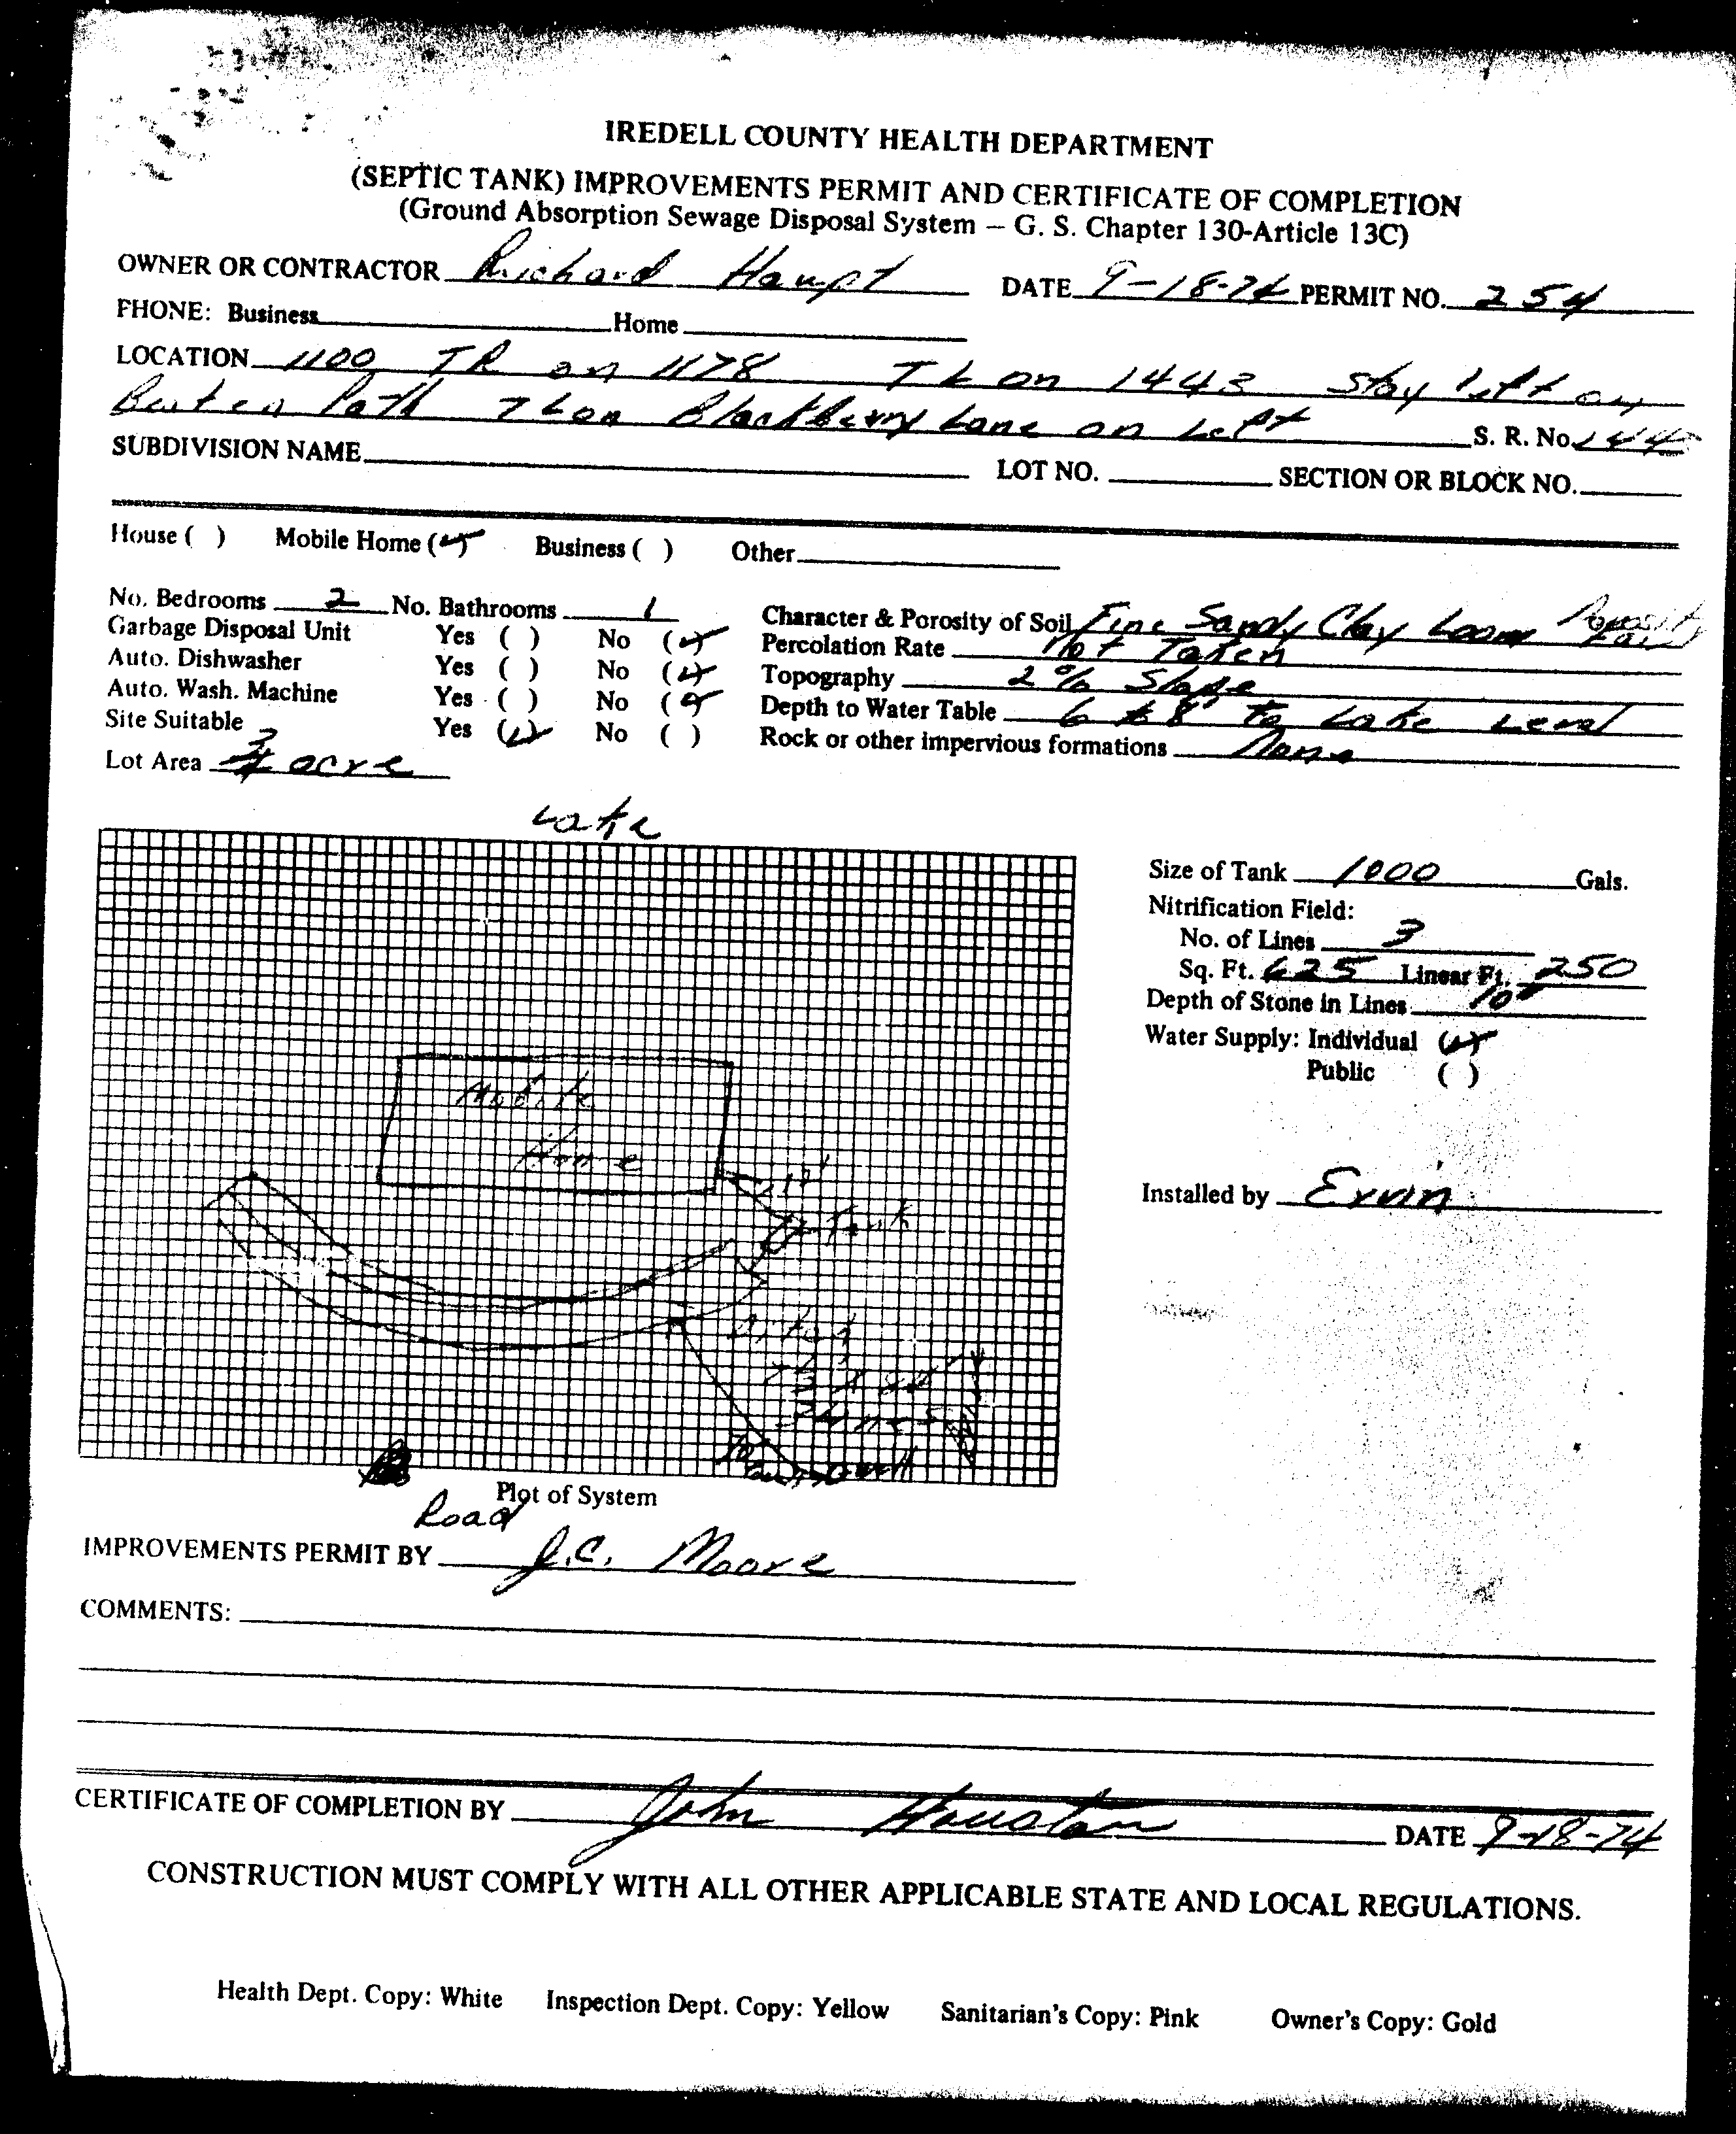 IREDELL COUNTY HEALTH DEPARTMENT
(SEPTIC TANK) IMPROVEMENTS PERMIT AND CERTIFICATE OF COMPLETION
(Ground Absorption Sewage Disposal System – G. S. Chapter 130-Article 13C)
OWNER OR CONTRACTOR Richard Haupt DATE 9-18-74 PERMIT NO. 254
PHONE: Business Home
LOCATION 1100 TR on 1178 TL on 1443 Stay left on
Beaten Path TL on Blackberry Lane on Left S. R. No. 144
SUBDIVISION NAME LOT NO. SECTION OR BLOCK NO.
House ( ) Mobile Home (✓) Business ( ) Other
No. Bedrooms 2 No. Bathrooms 1 Character & Porosity of Soil Fine Sandy Clay Loam Porosity Fair
Garbage Disposal Unit Yes ( ) No (✓) Percolation Rate Not Taken
Auto. Dishwasher Yes ( ) No (✓) Topography 2% Slope
Auto. Wash. Machine Yes ( ) No (✓) Depth to Water Table 6 to 8' to Lake Level
Site Suitable Yes (✓) No ( ) Rock or other impervious formations None
Lot Area 3/4 acre
Lake
Size of Tank 1000 Gals.
Nitrification Field:
No. of Lines 3
Sq. Ft. 625 Linear Ft. 250
Depth of Stone in Lines 10"
Water Supply: Individual (✓)
Public ( )
Mobile
Home
Tank
Installed by Ervin
3 Lines
To
well
Plot of System
Road
IMPROVEMENTS PERMIT BY J.C. Moore
COMMENTS:
CERTIFICATE OF COMPLETION BY John Houston DATE 9-18-74
CONSTRUCTION MUST COMPLY WITH ALL OTHER APPLICABLE STATE AND LOCAL REGULATIONS.
Health Dept. Copy: White Inspection Dept. Copy: Yellow Sanitarian's Copy: Pink Owner's Copy: Gold